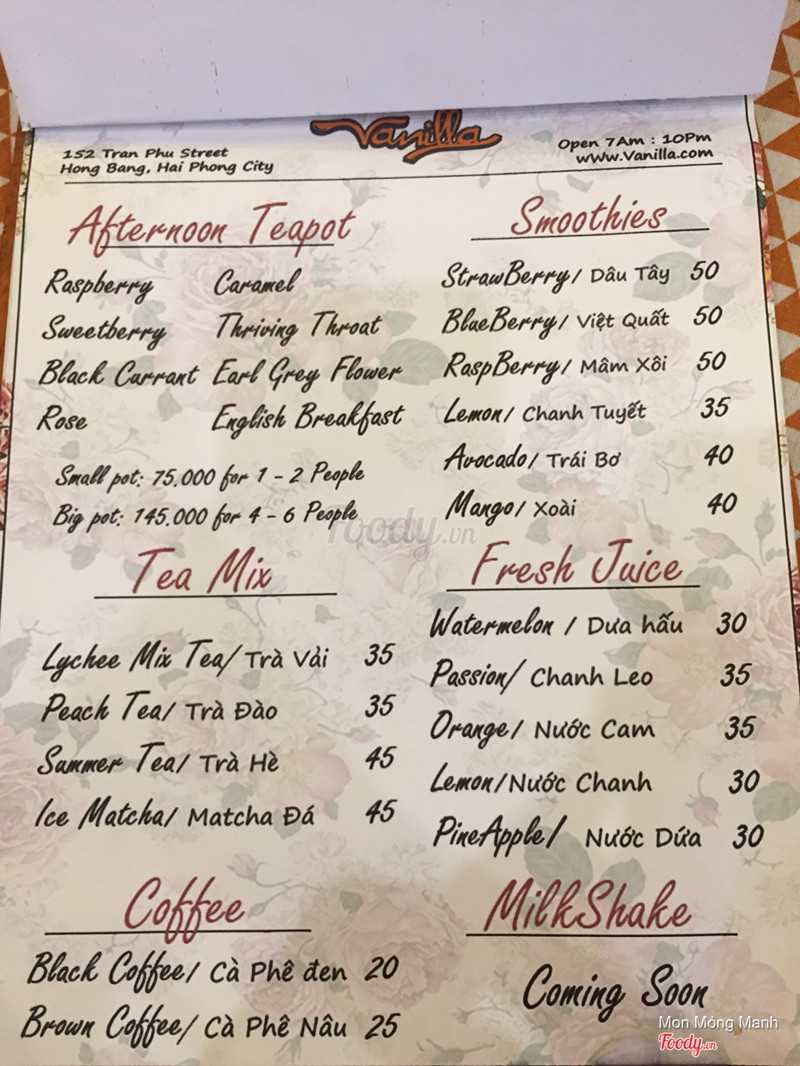 Vanilla
152 Tran Phu Street
Hong Bang, Hai Phong City
Open 7Am : 10Pm
www.Vanilla.com
Afternoon Teapot
Raspberry Caramel
Sweetberry Thriving Throat
Black Currant Earl Grey Flower
Rose English Breakfast
Small pot: 75.000 for 1 - 2 People
Big pot: 145.000 for 4 - 6 People
Tea Mix
Lychee Mix Tea/ Trà Vải 35
Peach Tea/ Trà Đào 35
Summer Tea/ Trà Hè 45
Ice Matcha/ Matcha Đá 45
Coffee
Black Coffee/ Cà Phê đen 20
Brown Coffee/ Cà Phê Nâu 25
Smoothies
StrawBerry/ Dâu Tây 50
BlueBerry/ Việt Quất 50
RaspBerry/ Mâm Xôi 50
Lemon/ Chanh Tuyết 35
Avocado/ Trái Bơ 40
Mango/ Xoài 40
Fresh Juice
Watermelon / Dưa hấu 30
Passion/ Chanh Leo 35
Orange/ Nước Cam 35
Lemon/Nước Chanh 30
PineApple/ Nước Dứa 30
MilkShake
Coming Soon
foody.vn
Mon Mỏng Manh
Foody.vn